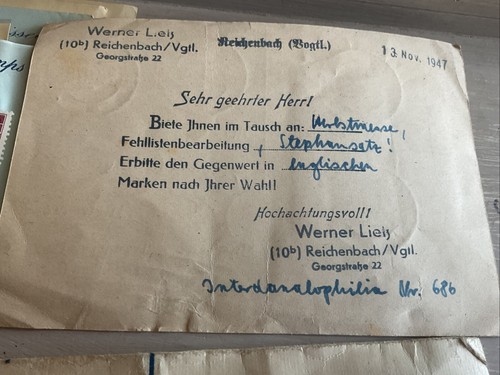 Werner Lieiz
(10b) Reichenbach/Vgtl.
Georgstraße 22
Reichenbach (Vogtl.)
13. Nov. 1947
Sehr geehrter Herr!
Biete Ihnen im Tausch an:
Fehllistenbearbeitung, Stephansatz!
Erbitte den Gegenwert in englischen
Marken nach Ihrer Wahl!
Hochachtungsvoll!
Werner Lieiz
(10b) Reichenbach/Vgtl.
Georgstraße 22
Nr. 686